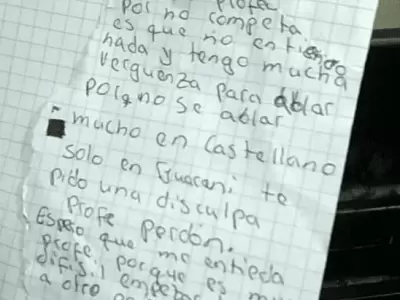 profe
por no competa
es que no entiendo
nada y tengo mucha
verguenza para ablar
porq no se ablar
mucho en castellano
solo en Guarani te
pido una disculpa
Profe perdón.
Espero que me entieda
profe, porque es mu
difisil empezar
a otro